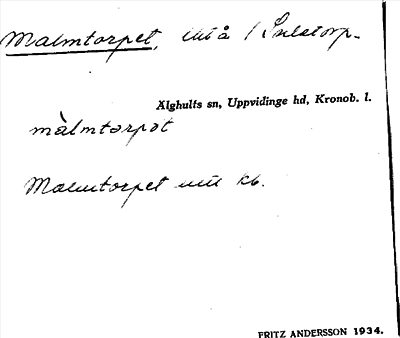 Malmtorpet,
Älghults sn, Uppvidinge hd, Kronob. l.
màlmtorpət
Malmtorpet kb.
FRITZ ANDERSSON 1934.